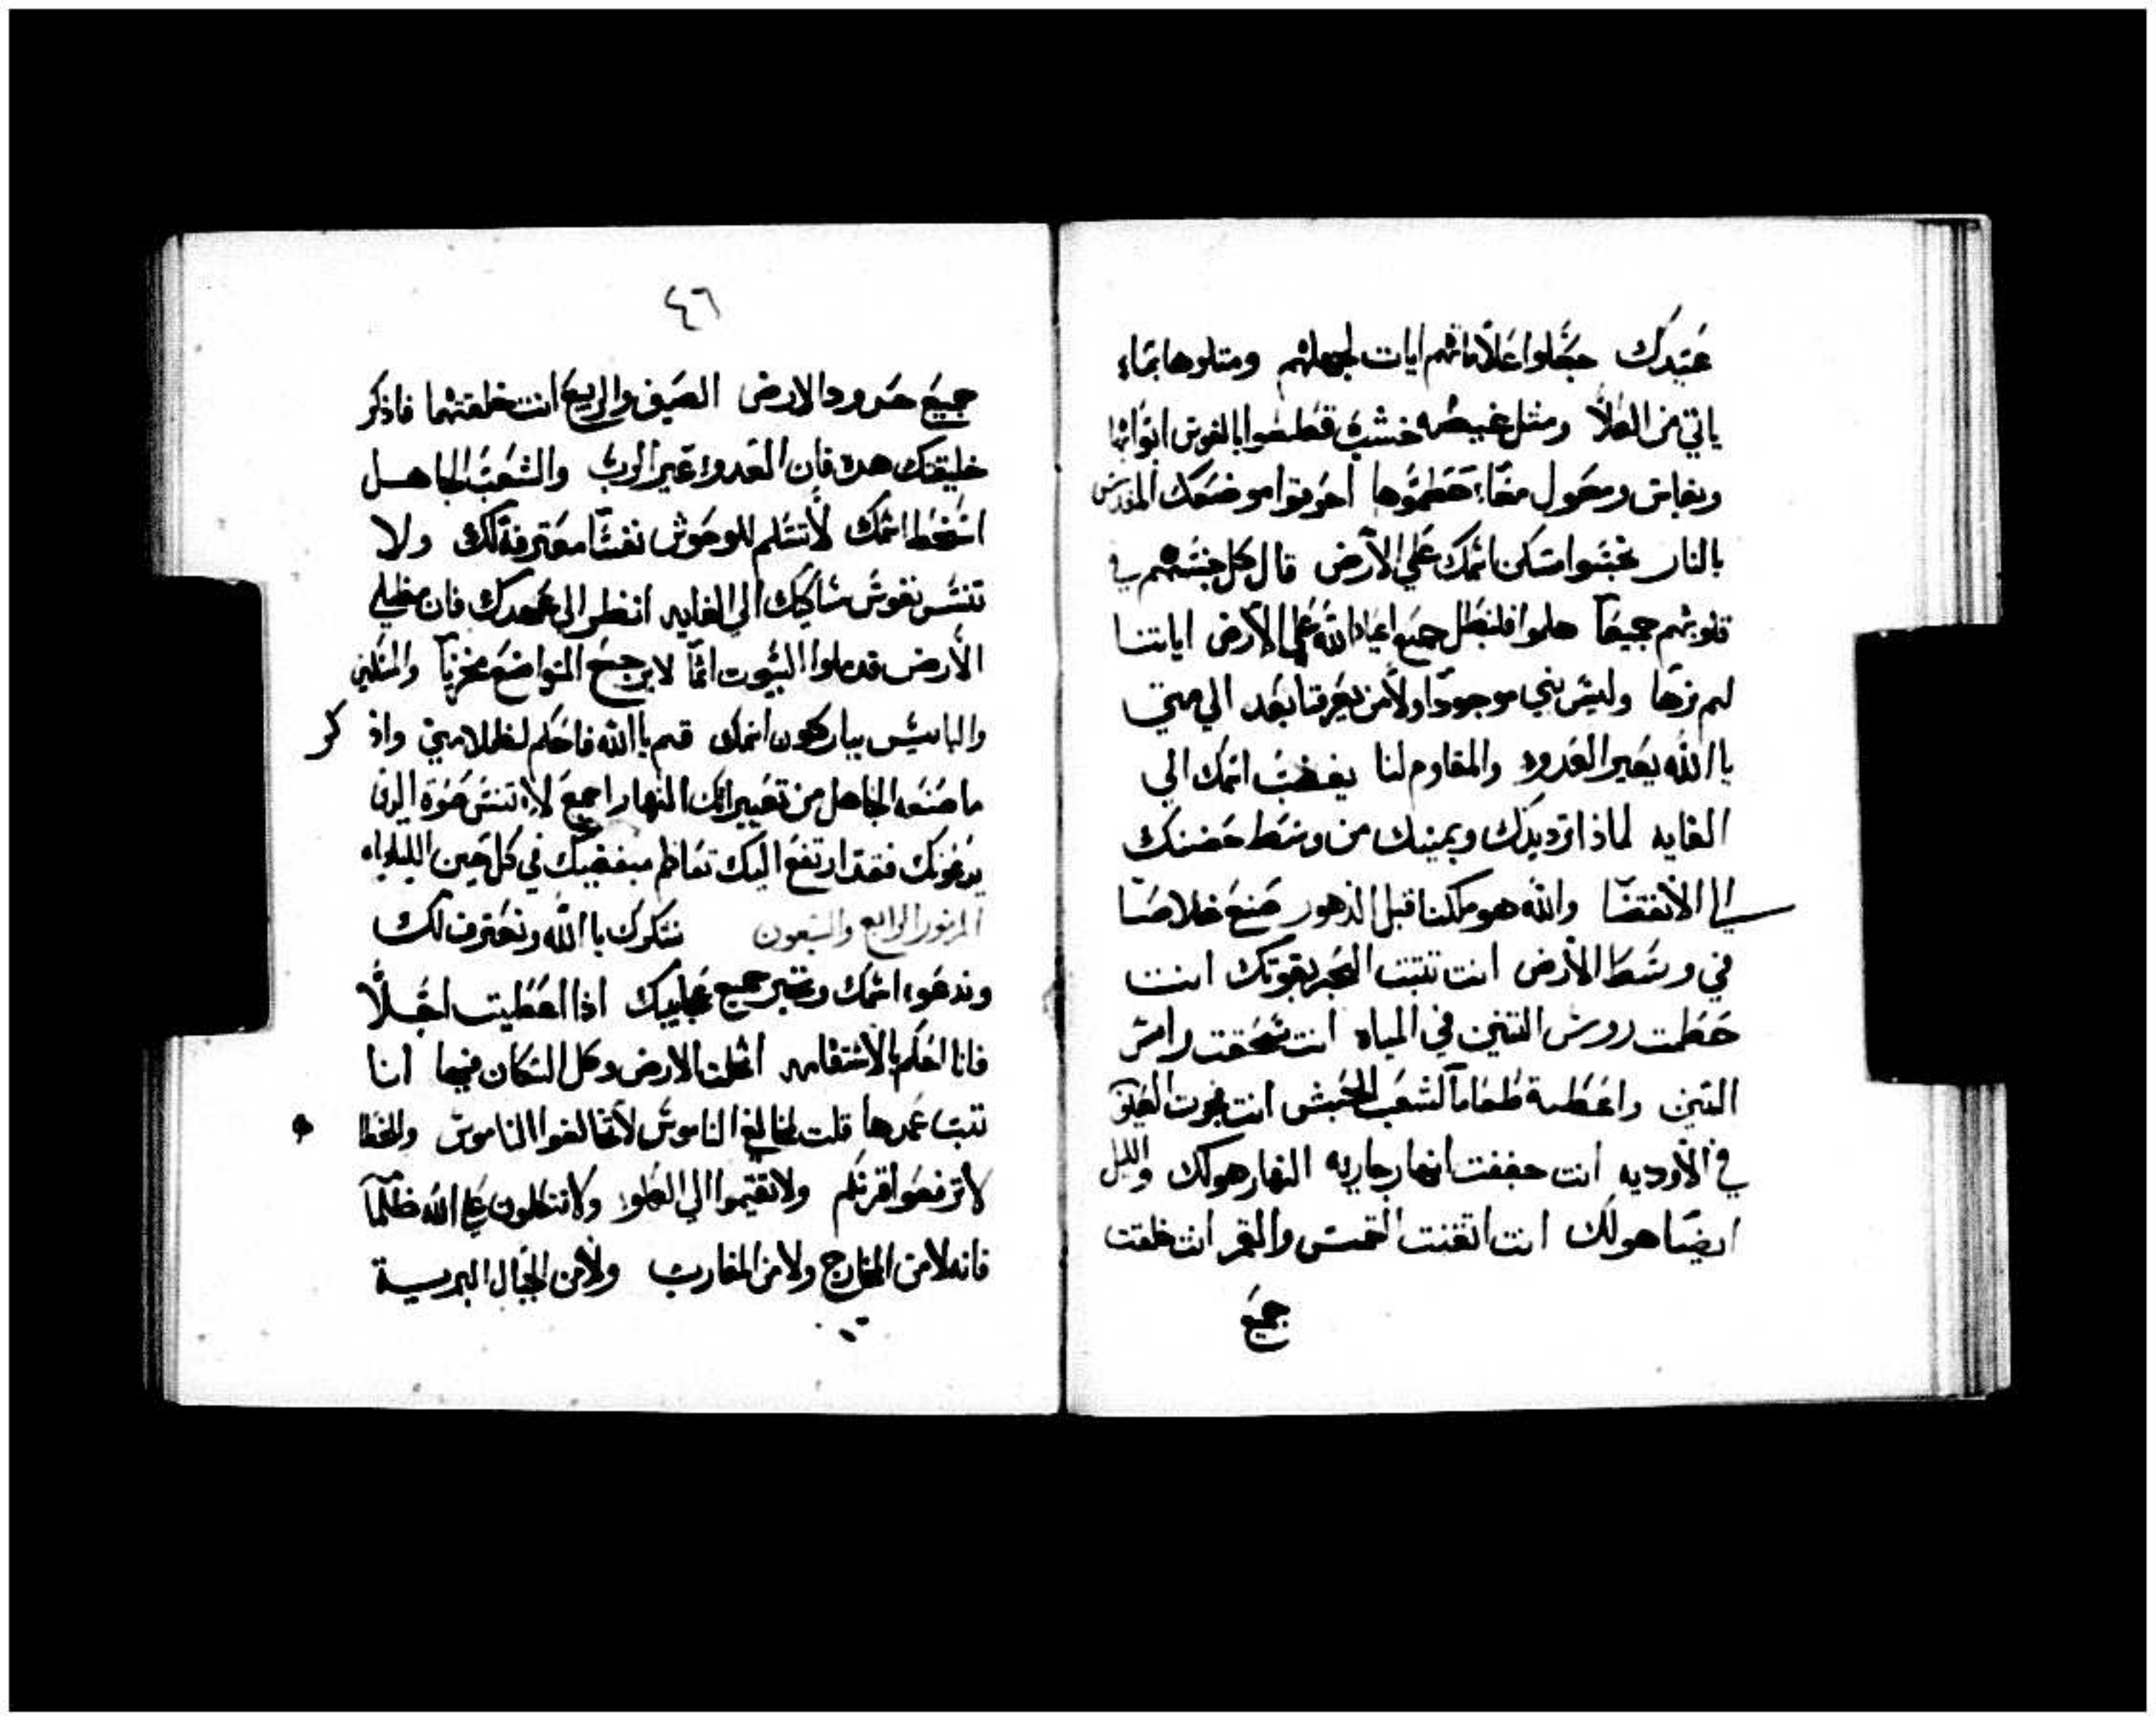 عيدك جعلوا علاماتهم ايات لجهلهم ومتلوها بماء
ياتي من العلا ومثل غيضه خشب قطعوا بالفوس ابوابها
وبفاس ومعول معا حطموها احرقوا موضعك المقدس
بالنار نجسوا مسكن اسمك علي الارض قال كل جنسهم في
قلوبهم جميعا هلموا فلنبطل جميع اعياد الله علي الارض اياتنا
لم نرها وليس نبي موجودا ولا من يعرفنا بعد الي متي
يا الله يعير العدو والمقاوم لنا يغضب اسمك الي
الغايه لماذا ترد يدك ويمينك من وسط حضنك
الي الانقضا والله هو ملكنا قبل الدهور صنع خلاصا
في وسط الارض انت تثبت البحر بقوتك انت
حطمت روس التنين في المياه انت سحقت راس
التنين واعطيته طعاما لشعب الحبش انت فجرت العيون
في الاوديه انت جففت انهار جاريه النهار هو لك والليل
ايضا هو لك انت اتقنت الشمس والقمر انت خلقت
جميع
٤٦
جميع حدود الارض الصيف والربيع انت خلقتهما فاذكر
خليقتك هده فان العدو عير الرب والشعب الجاهل
اسخط اسمك لا تسلم للوحوش نفسا معترفة لك ولا
تنس نفوس مساكينك الي الغايه انظر الي عهدك فان مظلمي
الارض قد ملوا البيوت اثما لا يرجع المتواضع مخزيا والمسكين
والبايس يباركون اسمك قم يا الله فاحكم لظلامتي واذكر
ما صنعه الجاهل من تعييرك النهار اجمع لا تنس صوة الدين
يدعونك فقد ارتفع اليك تعاظم مبغضيك في كل حين الليلوياه
المزمور الرابع والسبعون نشكرك يا الله ونعترف لك
وندعوا اسمك ونخبر جميع عجايبك اذا اعطيت اجلا
فانا احكم بالاستقامه انحلت الارض وكل السكان فيها انا
ثبت عمدها قلت لمخالفي الناموس لا تخالفوا الناموس والخطاه
لا ترفعوا قرنكم ولا تقيموا الي العلو ولا تتكلمون علي الله ظلما
فانه لا من المخارج ولا من المغارب ولا من الجبال البريسة